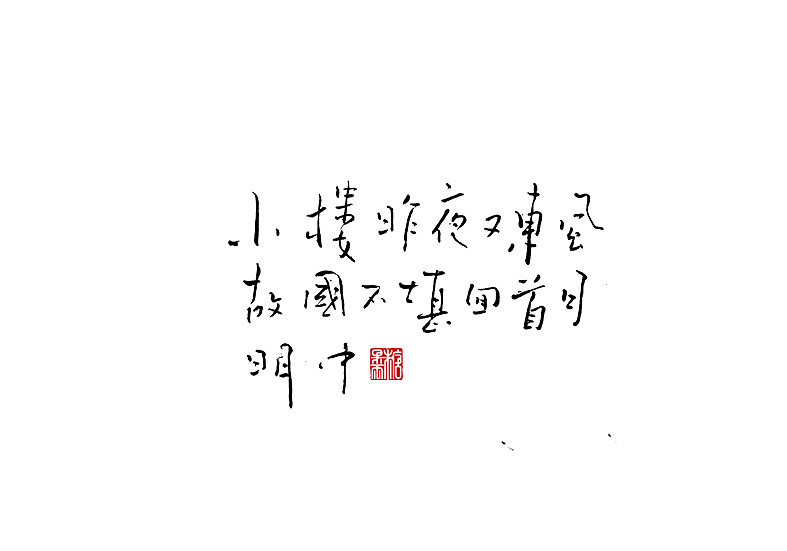 小樓昨夜又東風
故國不堪回首月
明中